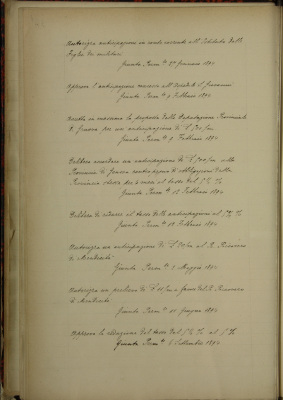 Autorizza anticipazione in conto corrente all'Istituto delle
Figlie dei militari
Giunta Perm.te 27 Gennaio 1892
Approva l'anticipazione all'Ospedale S. Giovanni
Giunta Perm.te 9 Febbraio 1892
Accetta in massima la proposta della Deputazione Provinciale
di Genova per un'anticipazione di L. 500/m
Giunta Perm.te 9 Febbraio 1892
Delibera accordare un'anticipazione di L. 500/m alla
Provincia di Genova contro pegno di obbligazioni della
Provincia stessa per 6 mesi al tasso del 5 %
Giunta Perm.te 12 Febbraio 1892
Delibera di ridurre il tasso delle anticipazioni al 5 %
Giunta Perm.te 19 Febbraio 1892
Autorizza un'anticipazione di L. al R. Ricovero
di Mendicità
Giunta Perm.te 7 Maggio 1892
Autorizza un prestito di L. a favore del R. Ricovero
di Mendicità
Giunta Perm.te 10 Giugno 1892
Approva la riduzione del tasso dal 5 % al 5 %
Giunta Perm.te 6 Settembre 1892